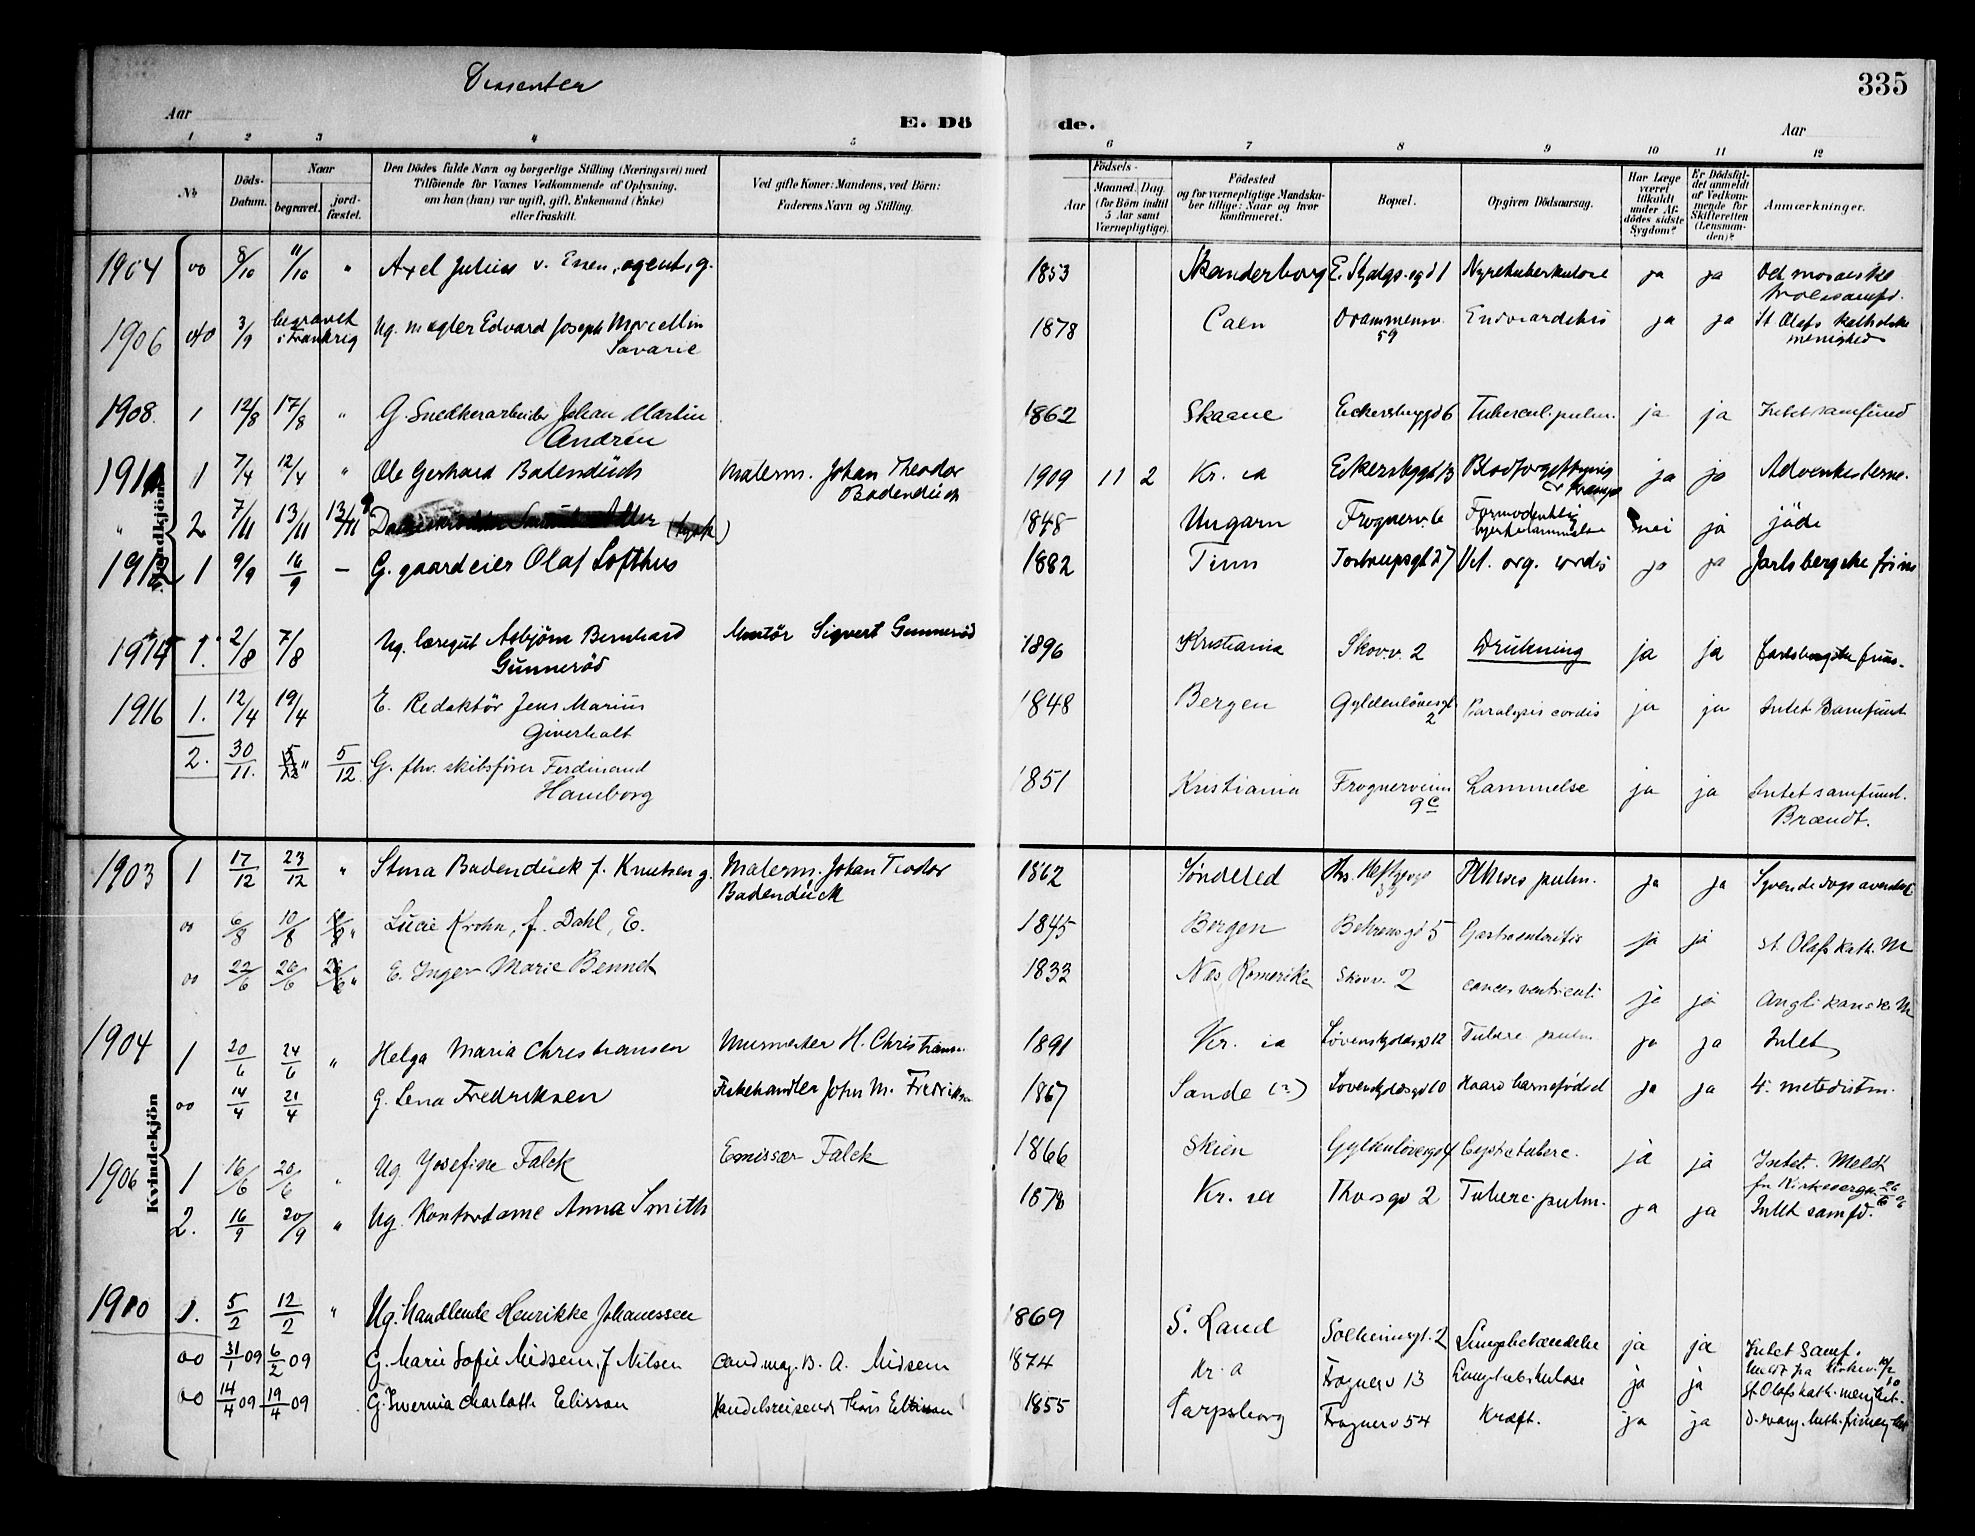 Dissenter
335
Aar
E. Dö de.
Aar
1 2 3 4 5 6 7 8 9 10 11 12
No
Döds-Datum.
Naar
begravet.
jord-fæstet.
Den Dödes fulde Navn og borgerlige Stilling (Næringsvei) med
Tilföiende for Voxnes Vedkommende af Oplysning,
om han (hun) var ugift, gift, Enkemand (Enke)
eller fraskilt.
Ved gifte Koner: Mandens, ved Börn:
Faderens Navn og Stilling.
Födsels-
Aar
Maaned. Dag.
(for Börn indtil
5 Aar samt
Værnepligtige).
Födested
og for værnepligtige Mandska-
ber tillige: Naar og hvor
konfirmeret.
Bopæl.
Opgiven Dödsaarsag.
Har Læge
været
tilkaldt
under Af-
dödes sidste
Sygdom?
Er Dödsfal-
det anmeldt
af Vedkom-
mende for
Skifteretten
(Lensman-
den)?
Anmærkninger.
Mandkjön
1904 oo 8/10 11/10 " Axel Julius v. Essen, agent, g. 1853 Skanderborg 1 Nyretuberkulose ja ja Det mosaiske
troessamfd.
1906 3/9 begravet
i Frankrig Ug. mægler Edvard Joseph Marcellin
Savarie 1878 Caen Drammensv.
59 Endocarditis ja ja St Olafs katholske
menighed
1908. 1 12/8 17/8 " G. Snedkerarbeider Johan Martin
Andrén 1862 Skaane Eckersbergsgd 6 Tubercul. pulm. ja ja Intet samfund
1 7/4 12/4 " Ole Gerhard Badendück Malerm. Johan Theodor
Badendück 1909 11 2 Kr. ia Blodforgiftning ja ja Adventisterne.
" 2 7/11 13/11 13/11 (tysk) 1848 Ungarn Frognerv. 6 Formodentlig
hjertelammelse nei ja jøde
1912 1 9/9 16/9 — G. gaardeier Olaf Lofthus 1882 Tinn 27 Vit. org. cordis ja ja Jarlsbergske frim
1914 1. 2/8 7/8 Ug. læregut Asbjørn Bernhard
Gunnerød Sigvert Gunnerød 1896 Kristiania Skovv. 2 Drukning ja ja
1916 1. 12/4 19/4 E. Redaktör Jens Marius
Giverholt 1848 Bergen Gyldenløvesgt
2 Paralysis cordis ja ja Intet Samfund
2. 30/11. " 5/12. G. fhv. skibsfører Ferdinand
Hamborg 1851 Kristiania Frognerveien
9c Lammelse ja ja Intet samfund.
Brændt.
Kvindekjön
1903 1 17/12 23/12 " Stina Badendück f. Knutsen g. Malerm. Johan Teodor
Badendück 1862 Søndeled Phtisis pulm. ja ja Syvende dags
oo 6/8 10/8 " Lucie Krohn, f. Dahl, E. 1845 Bergen Behrensgd 5 Gastroenteritis ja ja St. Olafs kath. M
oo 22/6 26/6 " E. Inger Marie Bennet 1832 Næs, Romerike Skovv. 2 cancer ventriculi ja ja Anglikanske M
1904 1 20/6 24/6 " Helga Maria Christiansen Murmester H. Christiansen 1891 Kr. ia Løvenskjoldsgd 12 Tuberc pulm ja ja Intet
oo 14/4 21/4 G. Lena Fredriksen Fiskehandler John M. Fredriksen 1867 Sande (?) Løvenskjoldsgd 10 Haard barnefødsel ja ja 4. metodistm.
1906 1 16/6 20/6 " Ug. Josefine Falck Emissær Falck 1866 Skien Gyldenløvesgd 4 ja ja Intet. Meldt
fra Kirkeverge 26/6 06
2. 16/9 20/9 " Ug. Kontordame Anna Smith 1878 Kr. ia 2 Tuberc. pulm. ja ja Intet samfd.
1910 1. 5/2 12/2 " Ug. Handlende Henrikke Johannessen 1869 S. Land Solheimsgt. 2 Lungebetændelse ja ja Intet samf.
Meldt fra Kirkev.
oo 31/1 09 6/2 09 G. Marie Sofie Midsem, f Nilsen cand. mag. B. A. Midsem 1874 Kr. a Frognerv 13 Lungetuberkulose ja ja St Olafs kath. menighet.
oo 14/4 09 19/4 09 G. Charlotte Handelsreisende 1855 Sarpsborg Frognerv 54 Kræft. ja ja